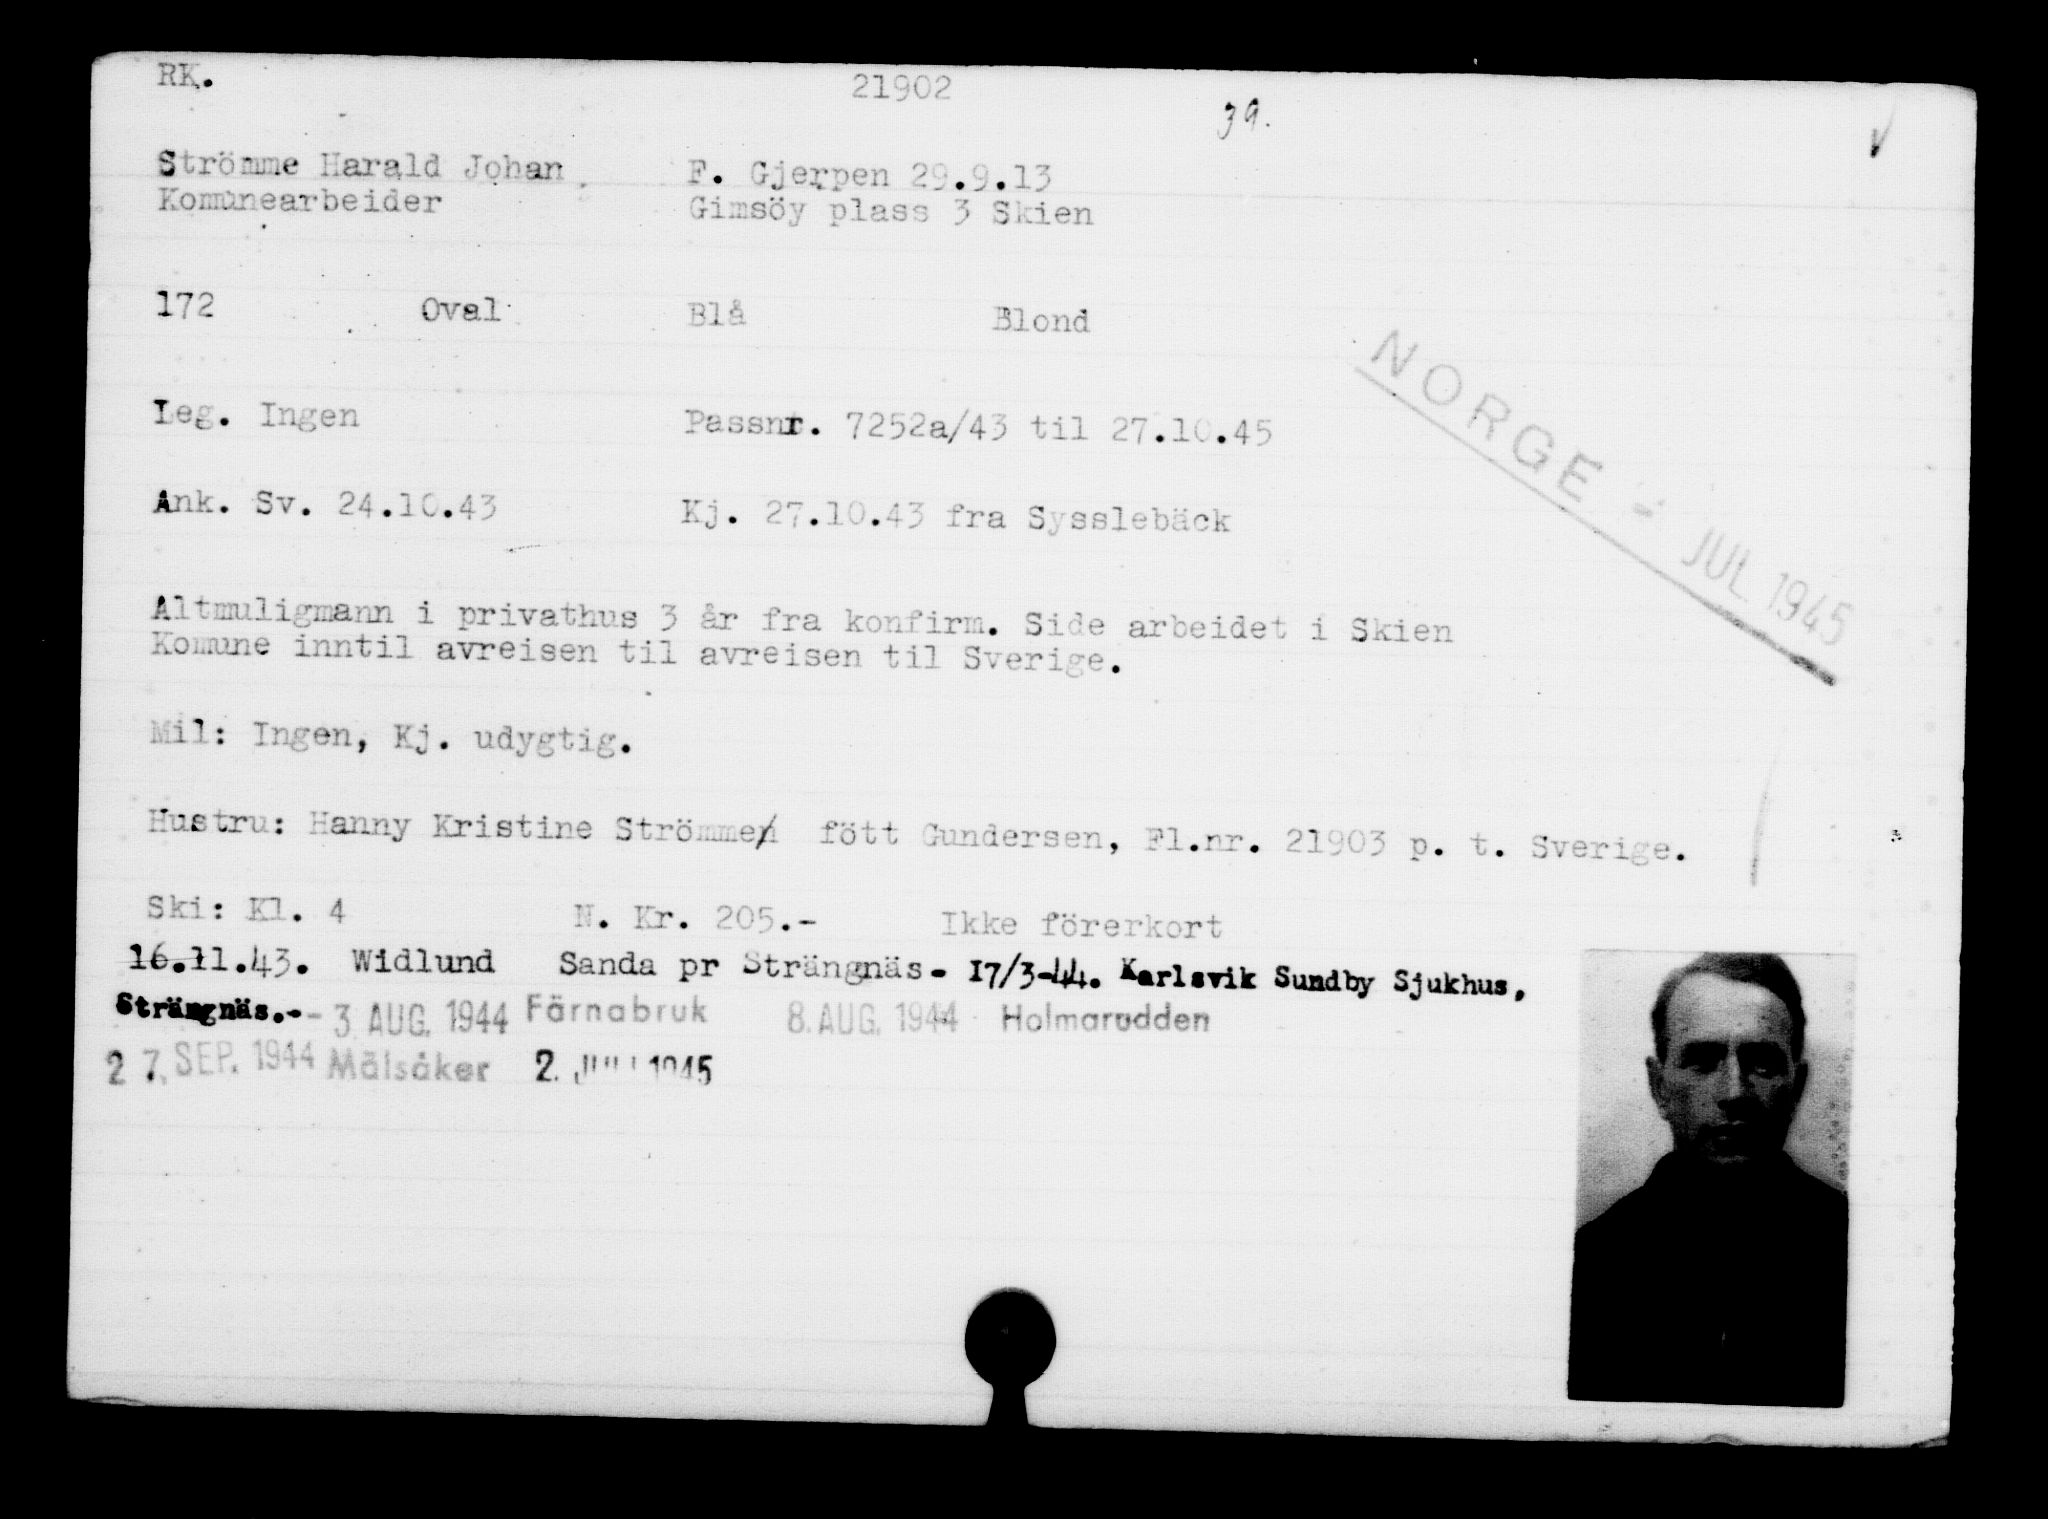 RK. 21902
39.
Strömme Harald Johan F. Gjerpen 29.9.13
Komunearbeider Gimsöy plass 3 Skien
172 Oval Blå Blond
Leg. Ingen Passnr. 7252a/43 til 27.10.45
Ank. Sv. 24.10.43 Kj. 27.10.43 fra Sysslebäck
NORGE - JUL 1945
Altmuligmann i privathus 3 år fra konfirm. Side arbeidet i Skien
Komune inntil avreisen til avreisen til Sverige.
Mil: Ingen, Kj. udygtig.
Hustru: Hanny Kristine Strömme fött Gundersen, Fl.nr. 21903 p. t. Sverige.
Ski: Kl. 4 N. Kr. 205.- Ikke förerkort
16.11.43. Widlund Sanda pr Strängnäs- 17/3-44. Karlsvik Sundby Sjukhus,
Strängnäs.- - 3. AUG. 1944 Färnabruk 8. AUG. 1944 Holmarudden
27. SEP. 1944 Mälsåker 2. 1945